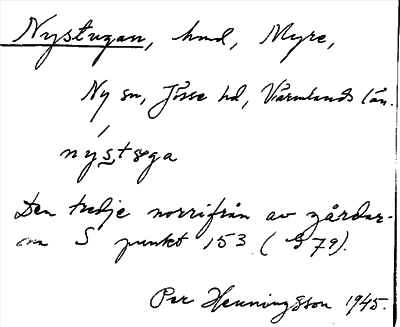 Nystugan, hmd, Myre,
Ny sn, Jösse hd, Värmlands län.
nýstøga
Den tredje norrifrån av gårdar-
na S punkt 153 (S 79).
Per Henningsson 1945.